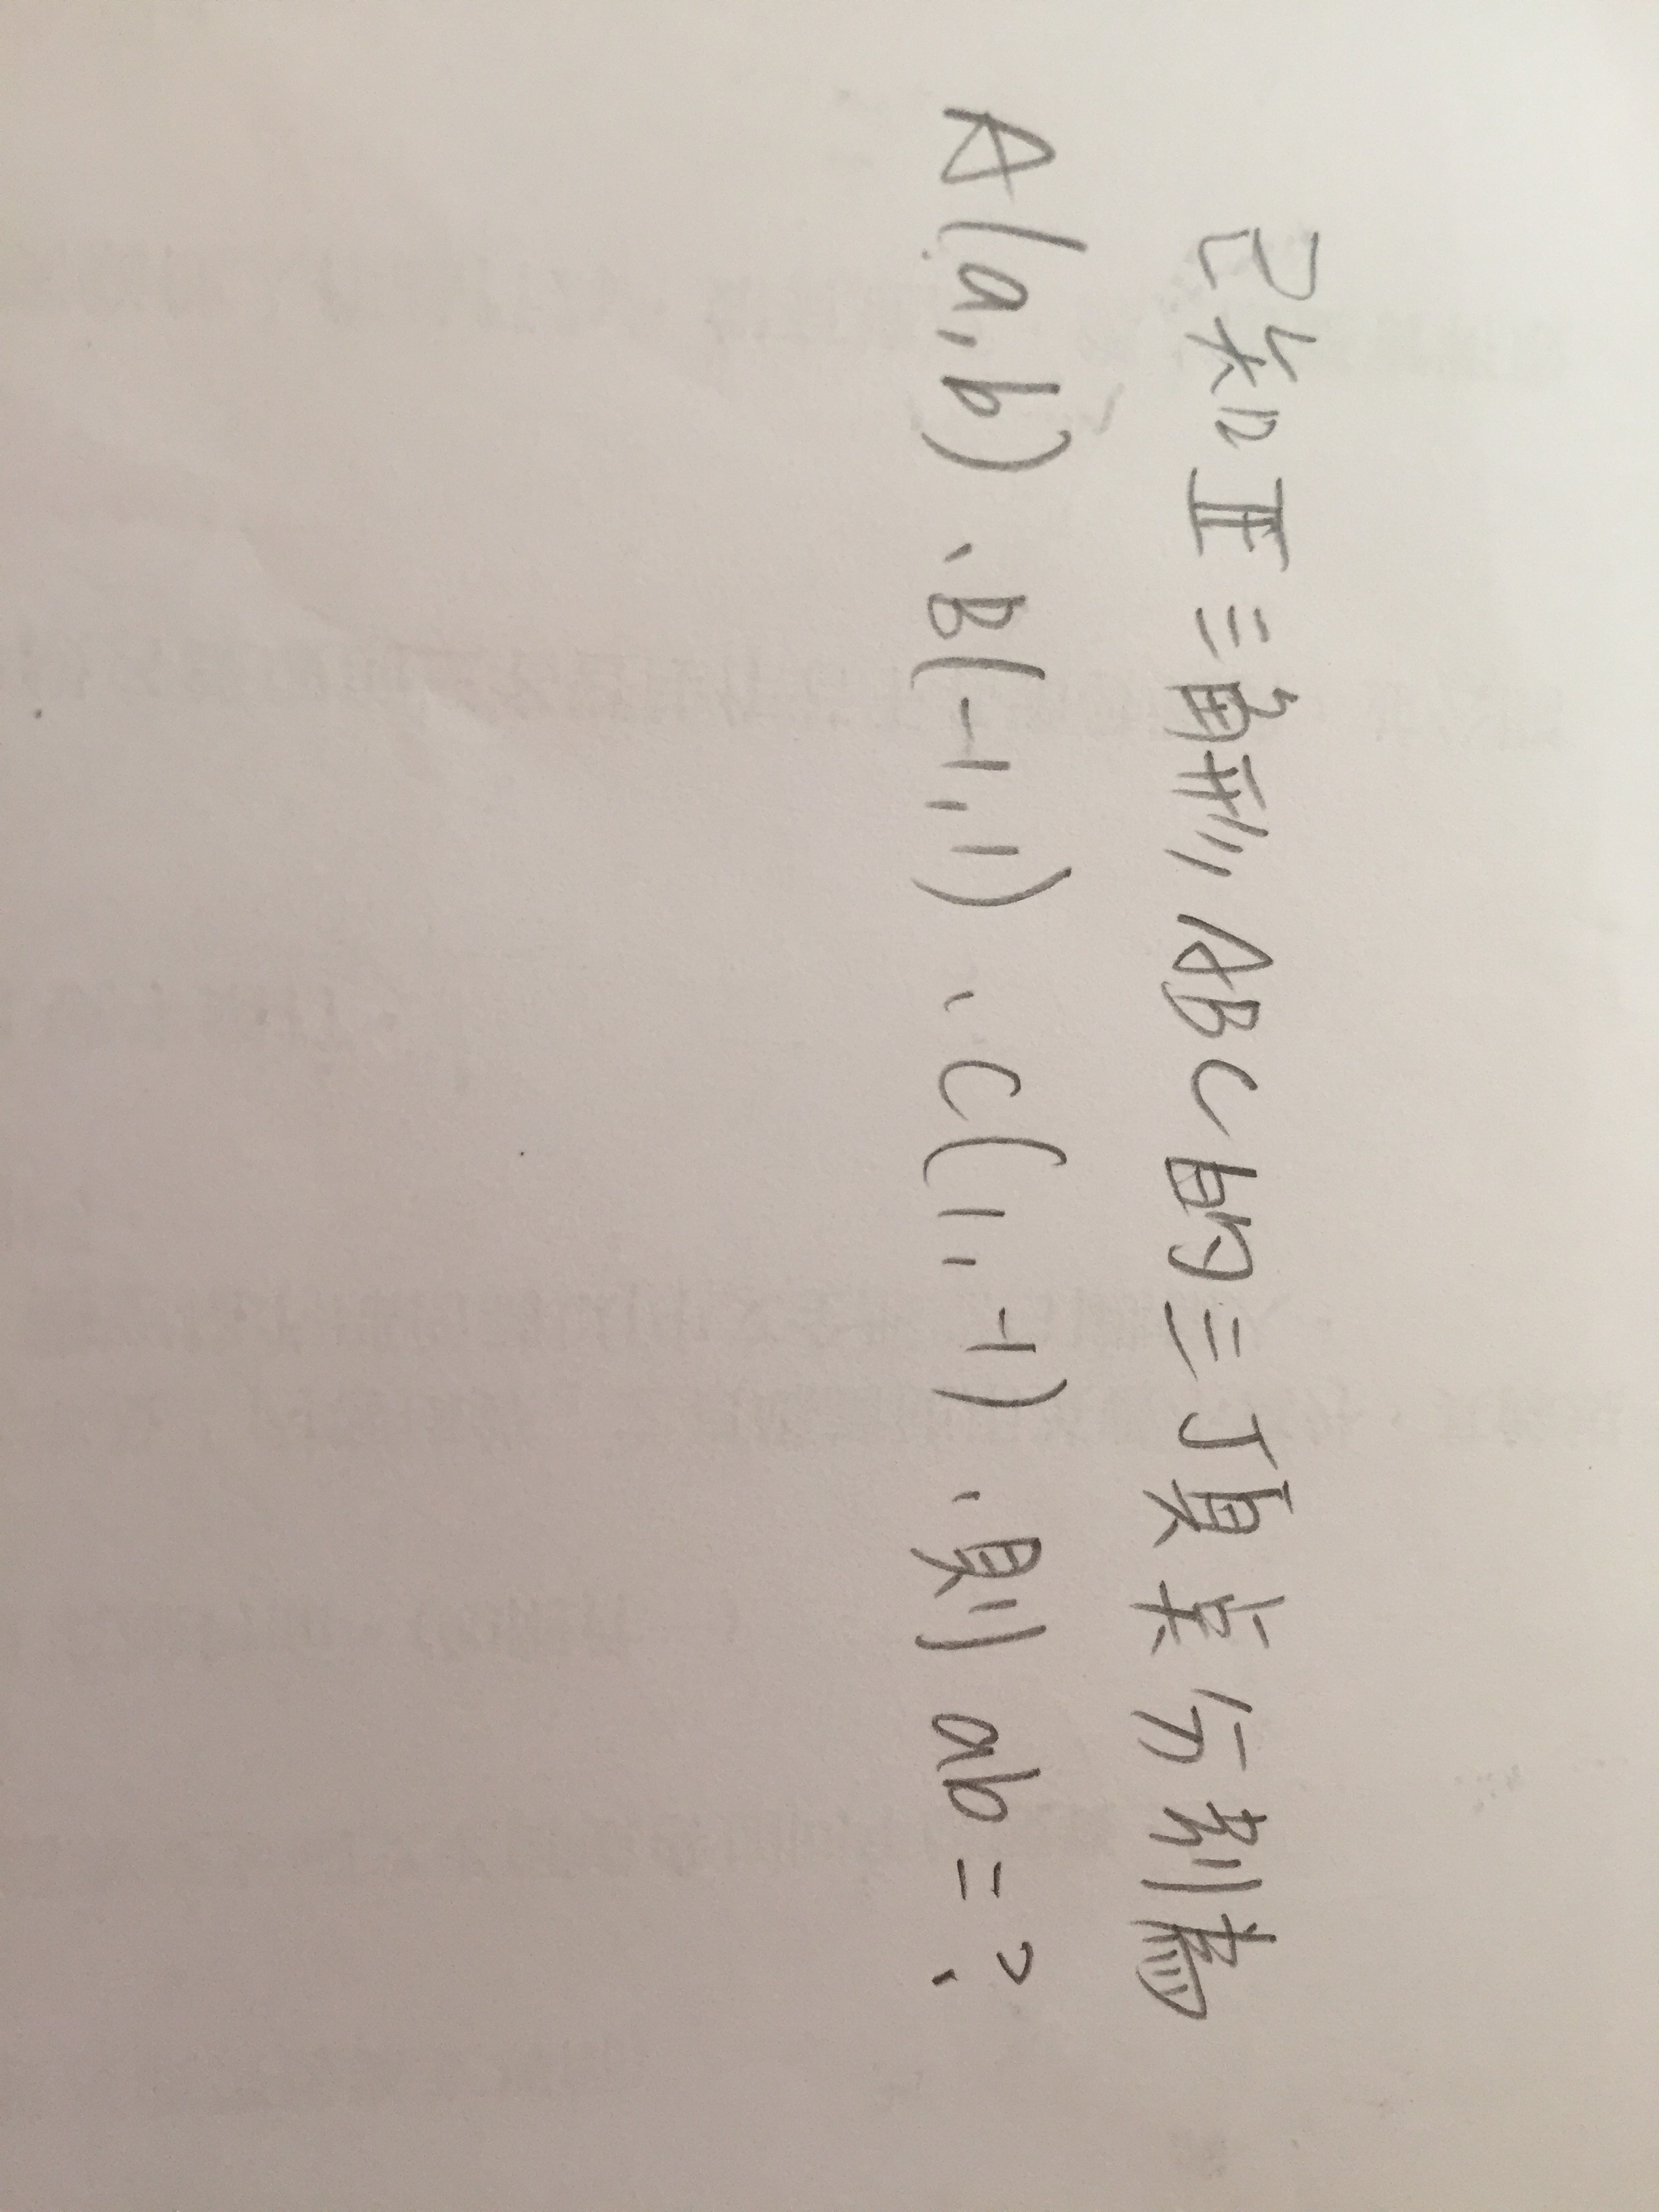 已知正三角形ABC的三頂点分別為
A(a,b)、B(-1,1)、C(1,-1)、則ab=?